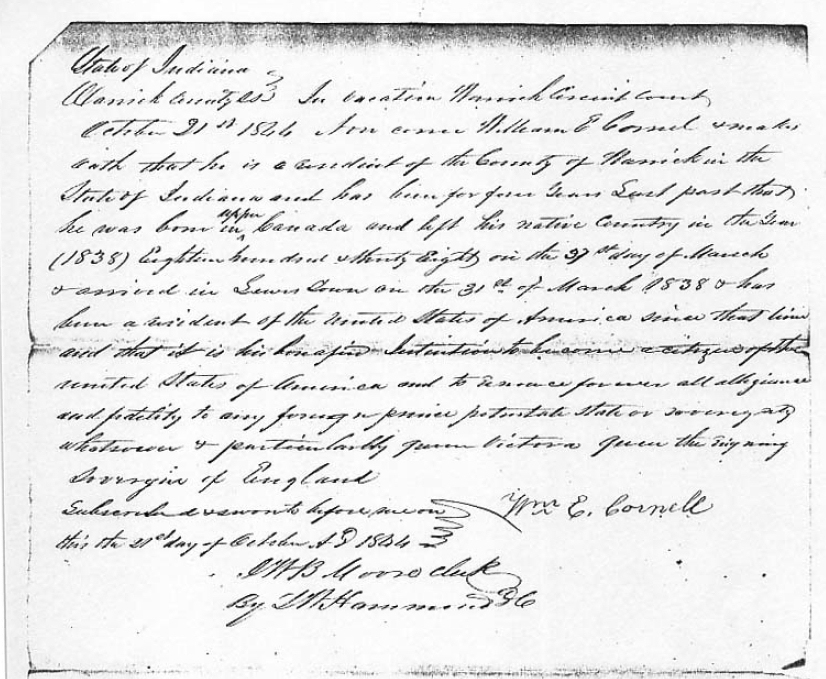 State of Indiana
Warrick County Ss In vacation Warrick Circuit Court
October 21st 1844 Now comes William E Cornel & makes
oath that he is a resident of the County of Warrick in the
State of Indiana and has been for four Years Last past that
he was born in upper Canada and left his native Country in the Year
(1838) Eighteen hundred & thirty Eight on the day of March
& arrived in Lewis Town on the 31st of March 1838 & has
been a resident of the United States of America since that time
and that it is his bonafide Intention to become a citizen of the
united States of America and to renounce forever all allegiance
and fidelity to any foreign prince potentate State or sovereignty
whatsoever & particularly queen Victora queen the
Sovereign of England
Subscribed & sworn to before me on
this the 21st day of October AD 1844
Wm E. Cornell
B Moore clerk
By Hammond DC